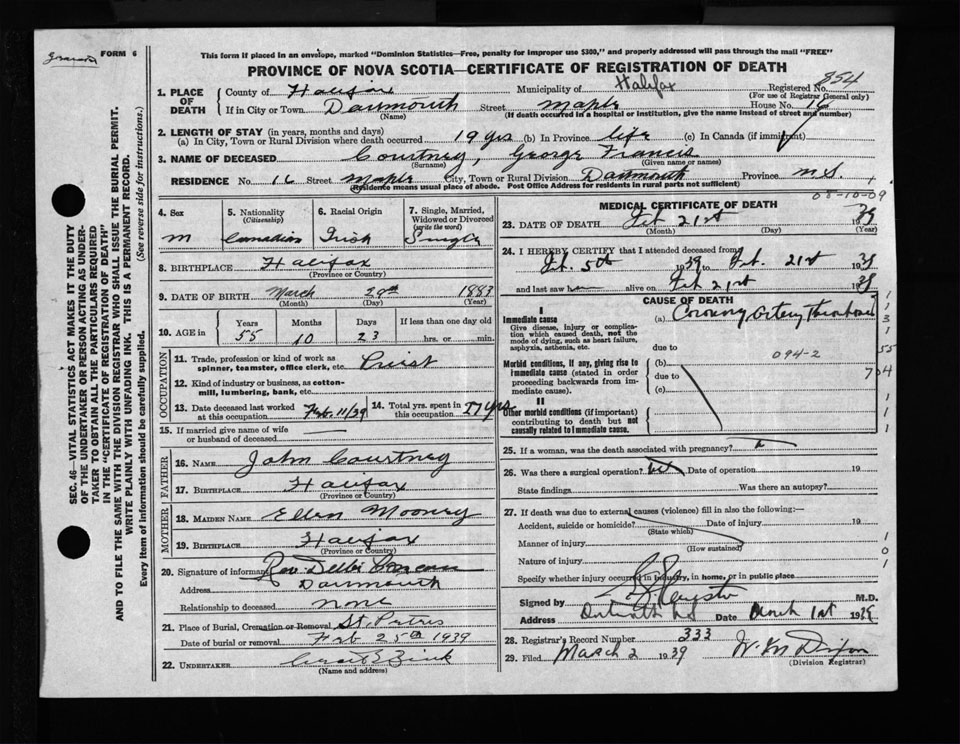 FORM 6
This form if placed in an envelope, marked "Dominion Statistics—Free, penalty for improper use $300," and properly addressed will pass through the mail "FREE"
PROVINCE OF NOVA SCOTIA—CERTIFICATE OF REGISTRATION OF DEATH
SEC. 46—VITAL STATISTICS ACT MAKES IT THE DUTY
OF THE UNDERTAKER OR PERSON ACTING AS UNDER-
TAKER TO OBTAIN ALL THE PARTICULARS REQUIRED
IN THE "CERTIFICATE OF REGISTRATION OF DEATH"
AND TO FILE THE SAME WITH THE DIVISION REGISTRAR WHO SHALL ISSUE THE BURIAL PERMIT.
WRITE PLAINLY WITH UNFADING INK. THIS IS A PERMANENT RECORD.
Every item of information should be carefully supplied. (See reverse side for instructions.)
1. PLACE OF DEATH
County of Halifax Municipality of Halifax Registered No. 854
(For use of Registrar General only)
If in City or Town Dartmouth Street Maple House No. 16
(Name) (If death occurred in a hospital or institution, give the name instead of street and number)
2. LENGTH OF STAY (in years, months and days)
(a) In City, Town or Rural Division where death occurred 19 yrs (b) In Province life (c) In Canada (if immigrant)
3. NAME OF DECEASED Courtney, George Francis
(Surname) (Given name or names)
RESIDENCE No. 16 Street Maple City, Town or Rural Division Dartmouth Province N.S.
(Residence means usual place of abode. Post Office Address for residents in rural parts not sufficient)
08-10-09
4. Sex M
5. Nationality (Citizenship) Canadian
6. Racial Origin Irish
7. Single, Married, Widowed or Divorced (write the word) Single
8. BIRTHPLACE Halifax
(Province or Country)
9. DATE OF BIRTH March 29th 1883
(Month) (Day) (Year)
10. AGE in Years 55 Months 10 Days 23 If less than one day old hrs. or min.
OCCUPATION
11. Trade, profession or kind of work as spinner, teamster, office clerk, etc. Priest
12. Kind of industry or business, as cotton-mill, lumbering, bank, etc.
13. Date deceased last worked at this occupation Feb. 11/39
14. Total yrs. spent in this occupation yrs
15. If married give name of wife or husband of deceased —
FATHER
16. NAME John Courtney
17. BIRTHPLACE Halifax
(Province or Country)
MOTHER
18. MAIDEN NAME Ellen Mooney
19. BIRTHPLACE Halifax
(Province or Country)
20. Signature of informant Rev.
Address Dartmouth
Relationship to deceased none
21. Place of Burial, Cremation or Removal St. Peters
Date of burial or removal Feb 25th 1939
22. UNDERTAKER Zink
(Name and address)
MEDICAL CERTIFICATE OF DEATH
23. DATE OF DEATH Feb 21st 1939
(Month) (Day) (Year)
24. I HEREBY CERTIFY that I attended deceased from
Feb. 5th 1939 to Feb. 21st 1939
and last saw him alive on Feb 21st 1939
CAUSE OF DEATH
I
Immediate cause
Give disease, injury or complication which caused death, not the mode of dying, such as heart failure, asphyxia, asthenia, etc.
(a) Coronary Artery Thrombosis
due to
094-2
Morbid conditions, if any, giving rise to immediate cause (stated in order proceeding backwards from immediate cause).
(b)
due to
(c)
II
Other morbid conditions (if important) contributing to death but not causally related to immediate cause.
25. If a woman, was the death associated with pregnancy?
26. Was there a surgical operation? Date of operation 19
State findings Was there an autopsy?
27. If death was due to external causes (violence) fill in also the following:—
Accident, suicide or homicide? Date of injury 19
(State which)
Manner of injury
(How sustained)
Nature of injury
Specify whether injury occurred in industry, in home, or in public place
Signed by M.D.
Address Date March 1st 1939
28. Registrar's Record Number 333
29. Filed March 2 1939 W. M. Dixon
(Division Registrar)